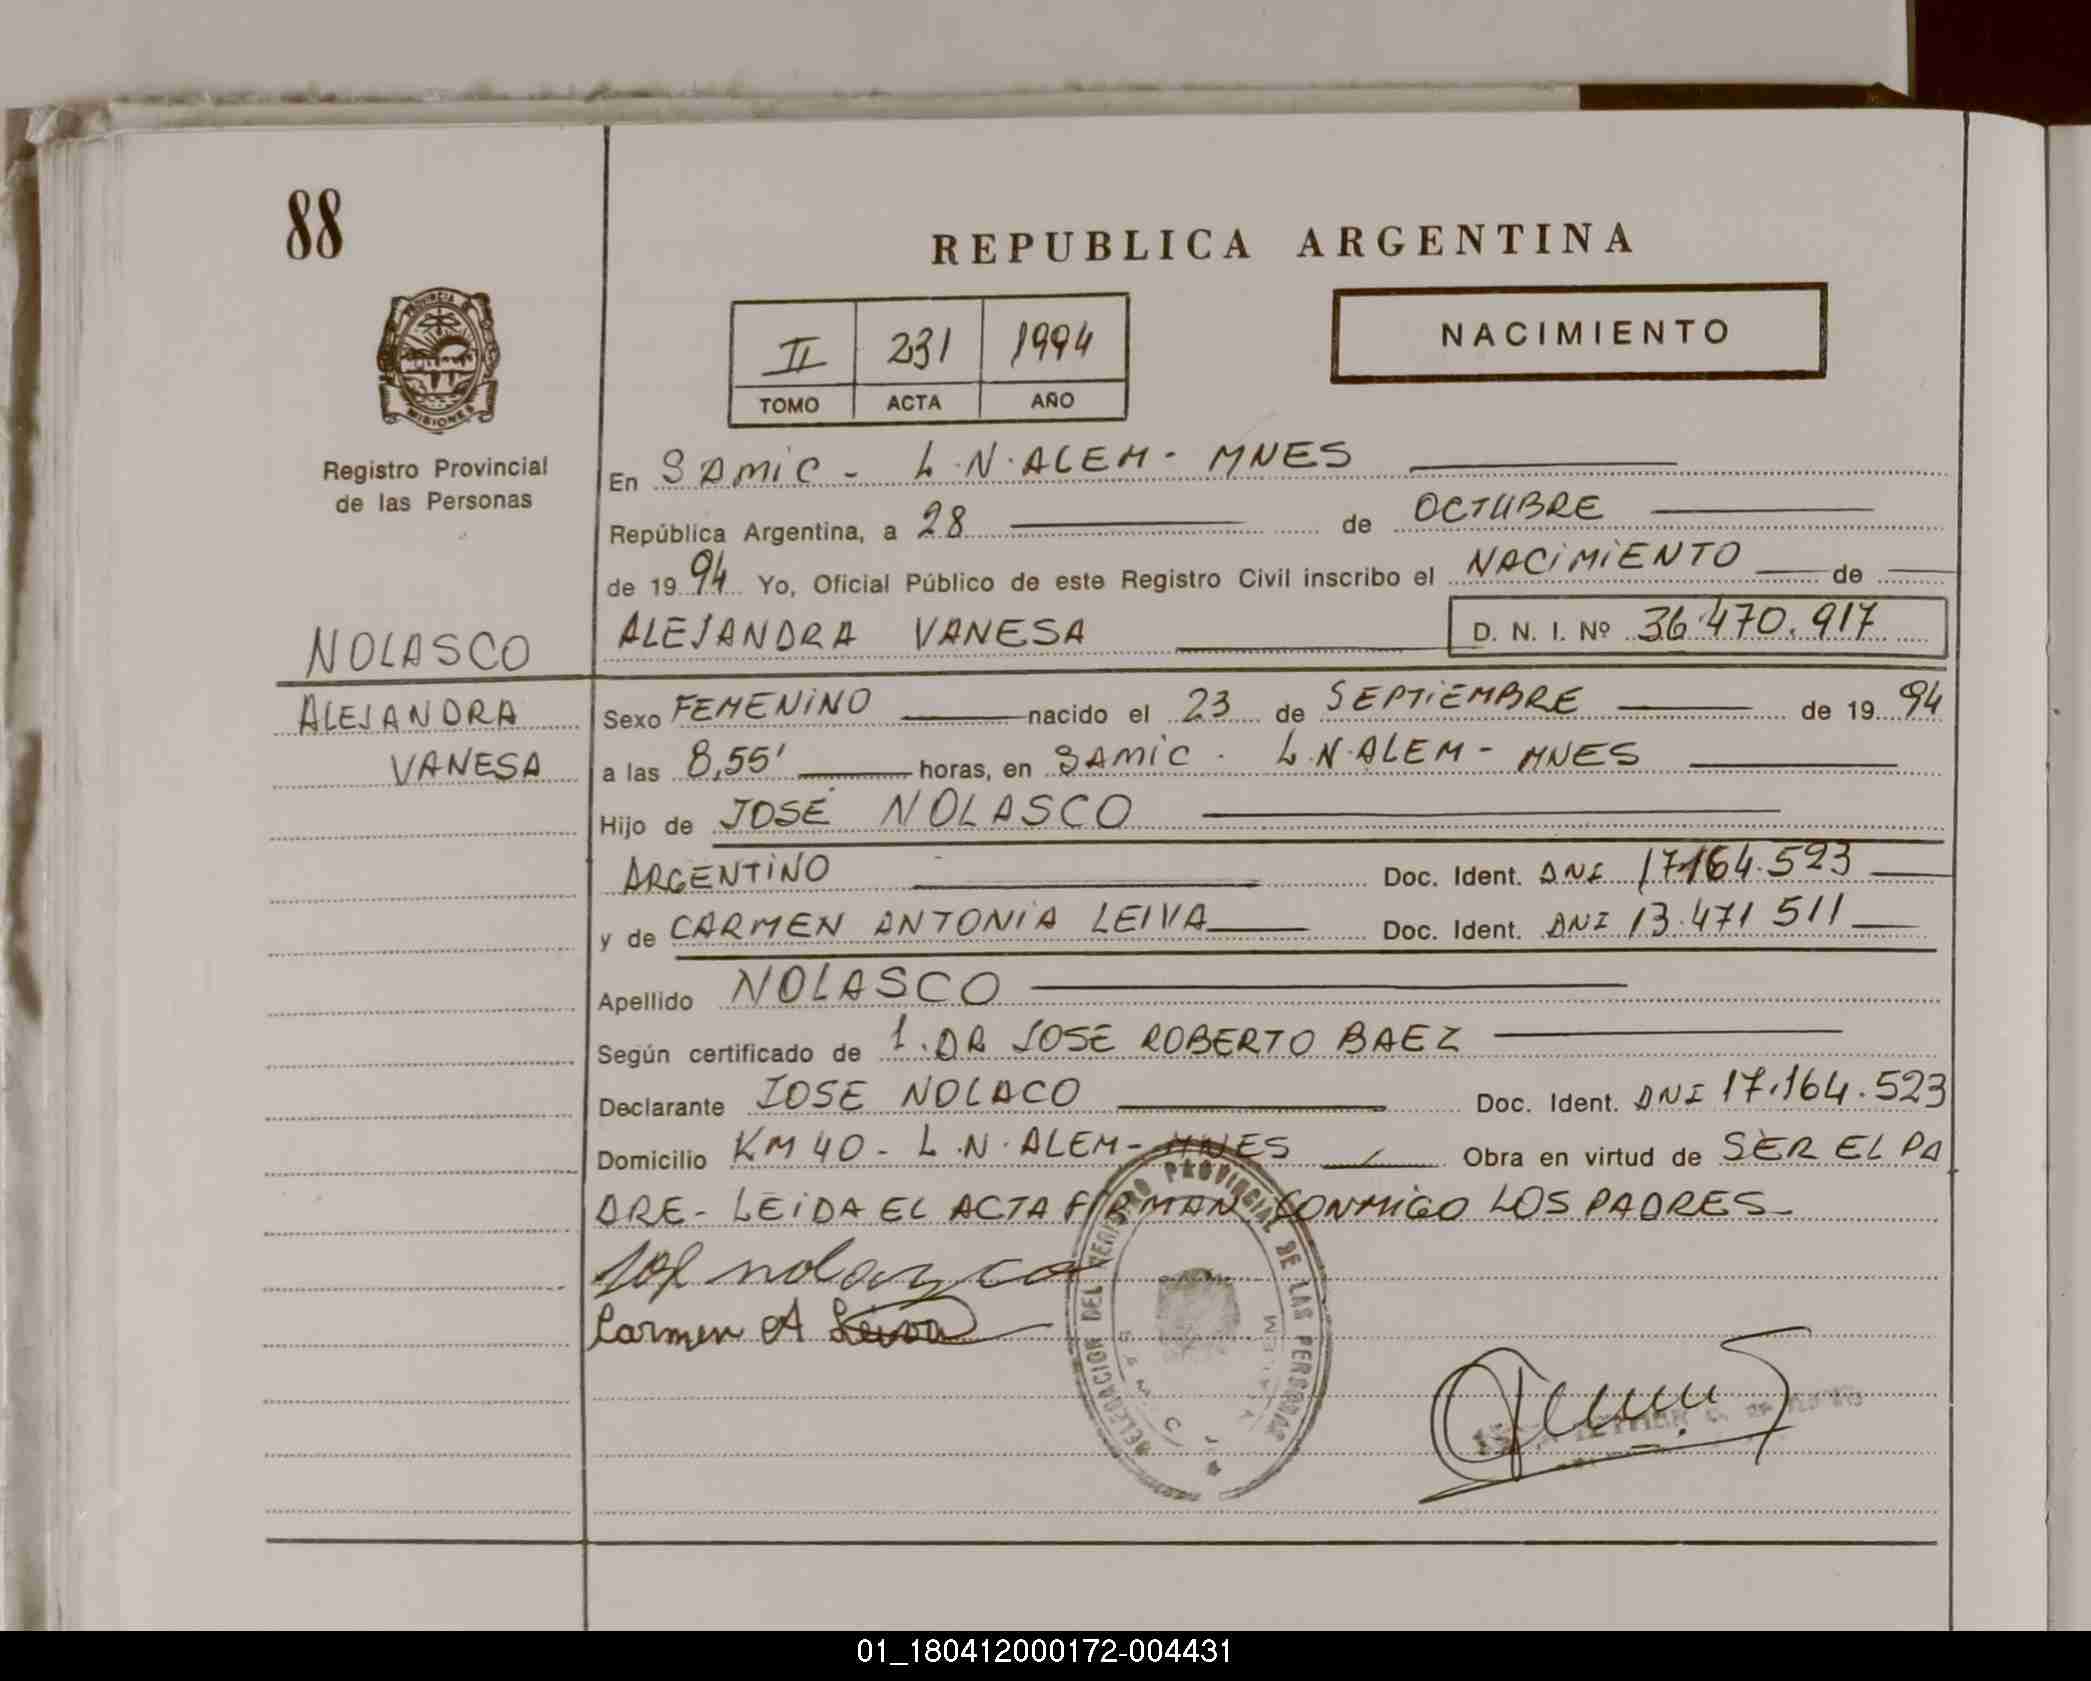 88
REPUBLICA ARGENTINA
II 231 1994
TOMO ACTA AÑO
NACIMIENTO
PROVINCIA
MISIONES
Registro Provincial
de las Personas
En SAMIC - L.N.ALEM - MNES
República Argentina, a 28 de OCTUBRE
de 1994 Yo, Oficial Público de este Registro Civil inscribo el NACIMIENTO de
ALEJANDRA VANESA D. N. I. Nº 36.470.917
NOLASCO
ALEJANDRA
VANESA
Sexo FEMENINO nacido el 23 de SEPTIEMBRE de 1994
a las 8,55' horas, en SAMIC. L.N.ALEM - MNES
Hijo de JOSÉ NOLASCO
ARGENTINO Doc. Ident. DNI 17.164.523
y de CARMEN ANTONIA LEIVA Doc. Ident. DNI 13.471 511
Apellido NOLASCO
Según certificado de 1. DR JOSE ROBERTO BAEZ
Declarante JOSE NOLACO Doc. Ident. DNI 17.164.523
Domicilio KM 40 - L.N. ALEM - MNES Obra en virtud de SER EL PA
DRE - LEIDA EL ACTA FIRMAN CONMIGO LOS PADRES
nolazco
Carmen A Leiva
PROVINCIAL DE LAS PERSONAS
01_180412000172-004431